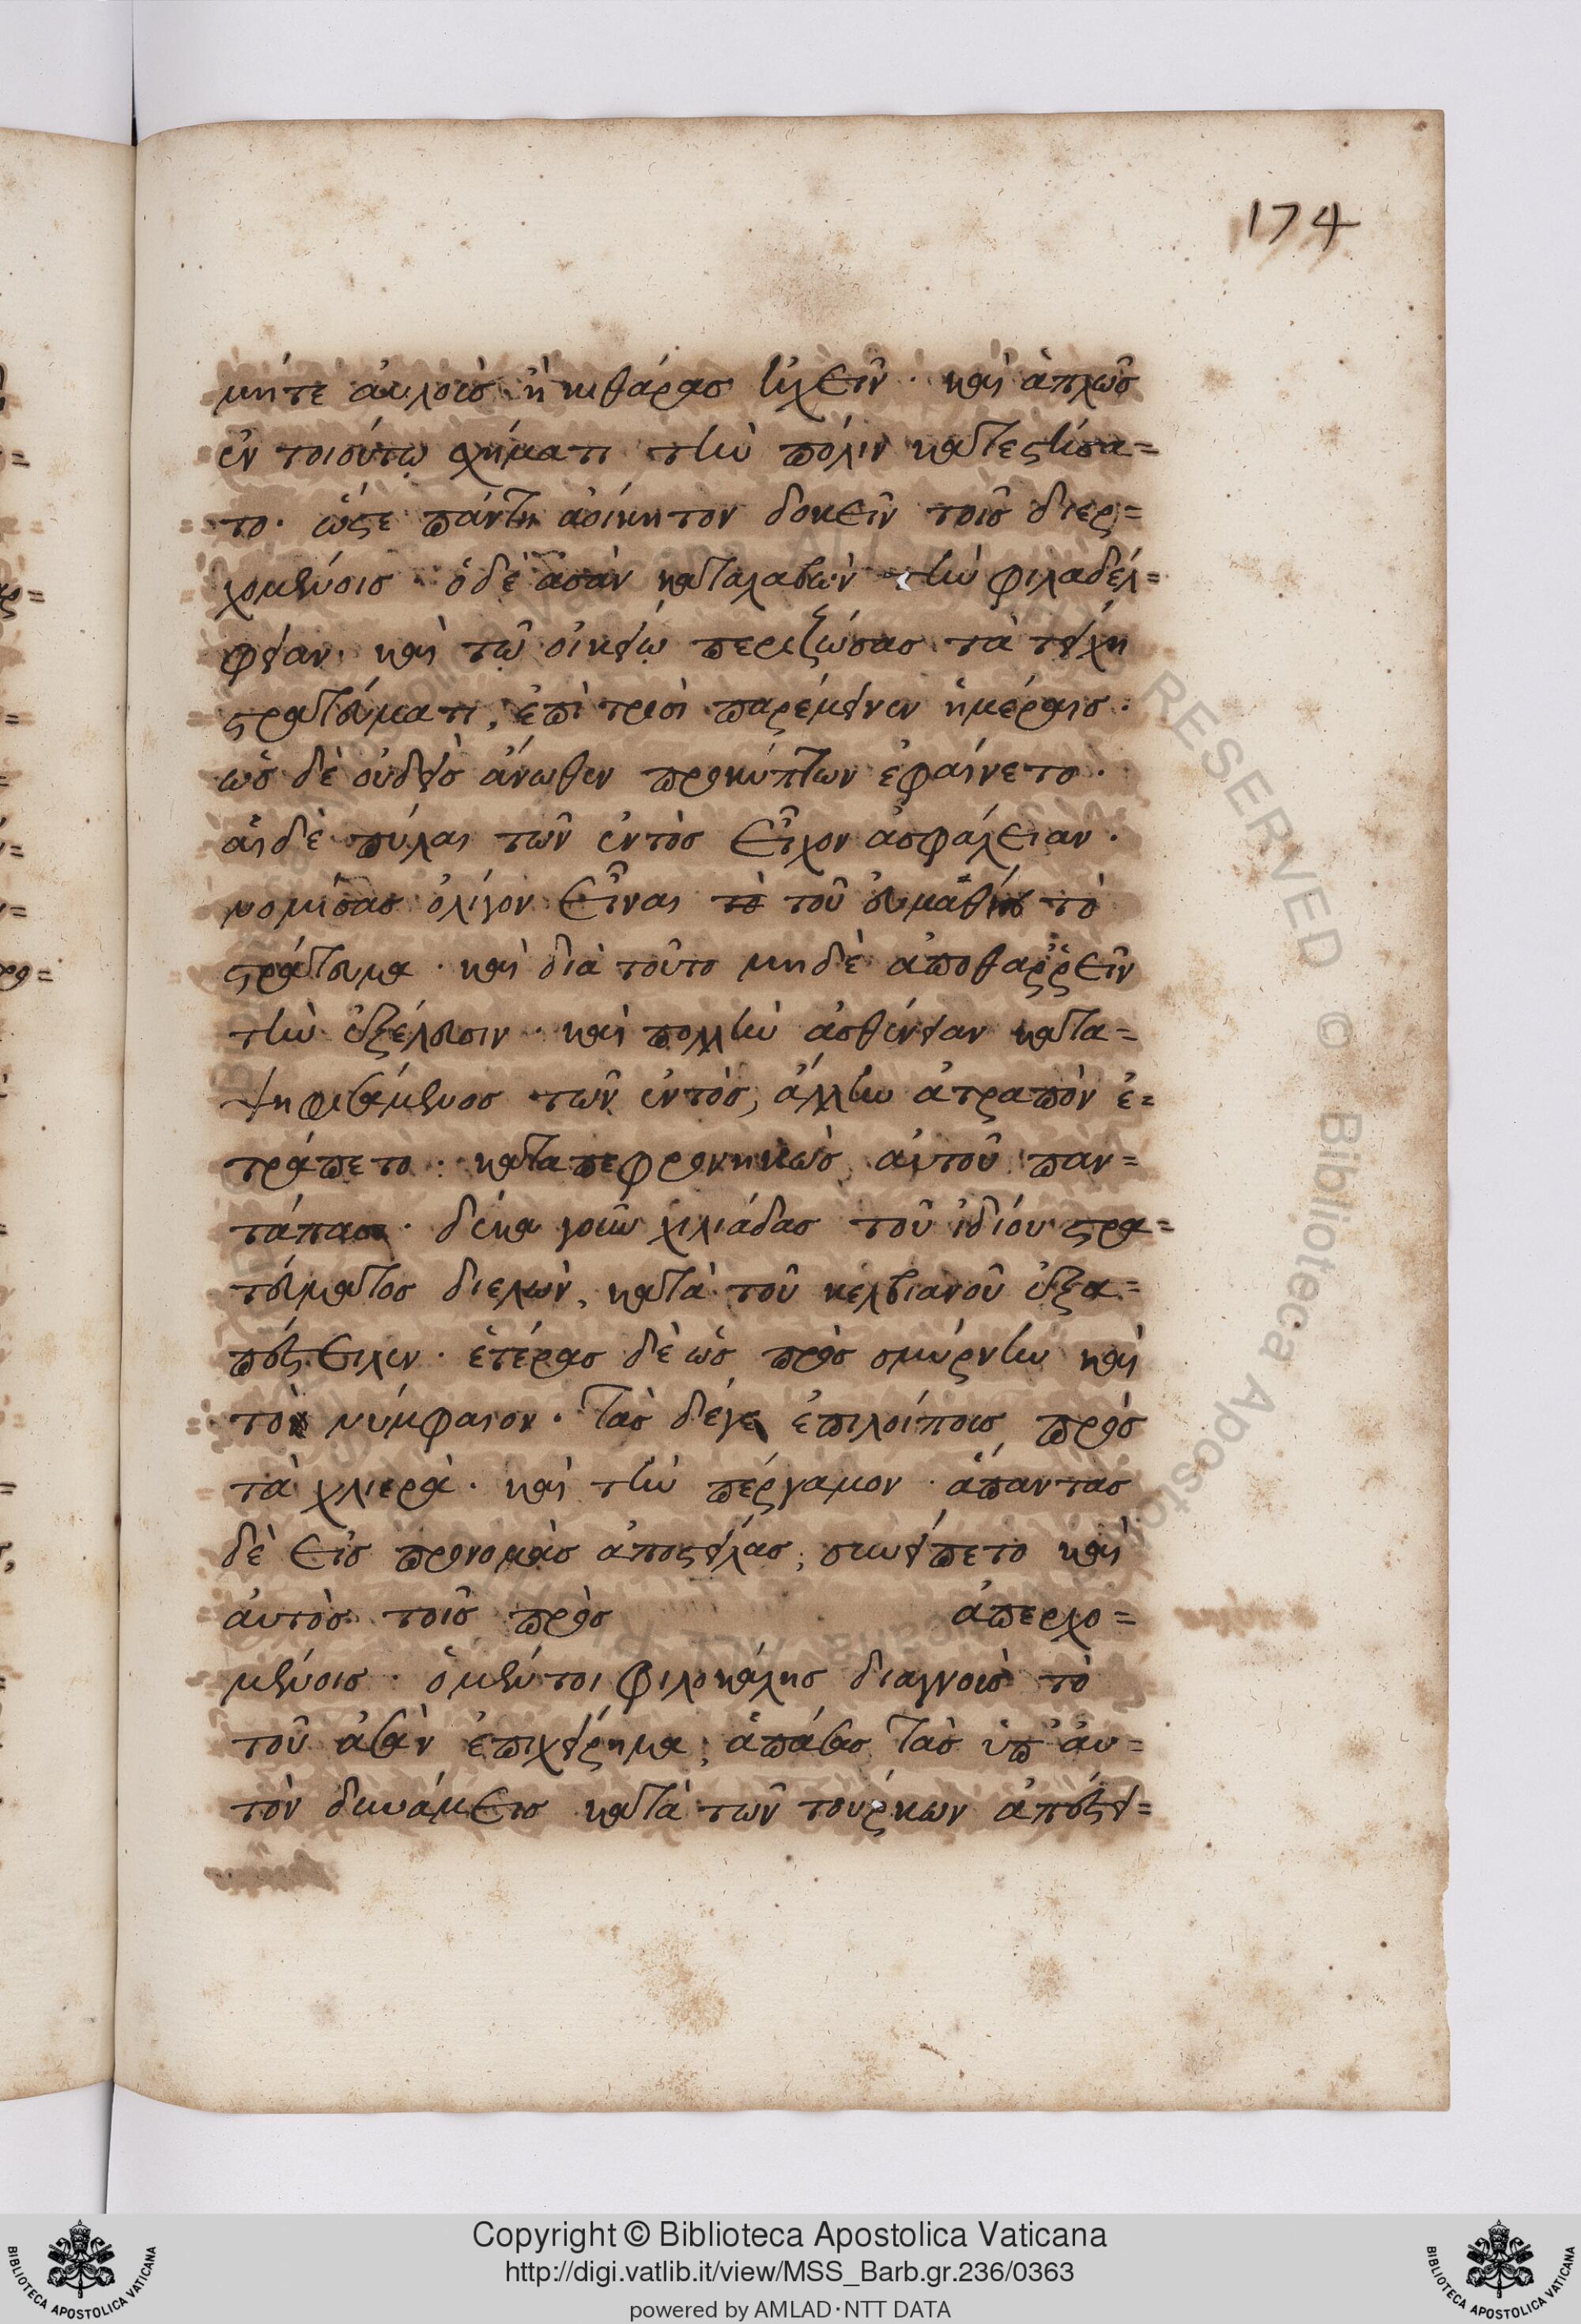 174
μήτε αὐλοὺς ἢ κιθάρας ἠχεῖν · καὶ ἁπλῶς
ἐν τοιούτῳ σχήματι τὴν πόλιν κατεστήσα=
το · ὥστε πάντη ἀοίκητον δοκεῖν τοῖς διερ=
χομένοις · ὁ δὲ ἀσὰν καταλαβὼν τὴν φιλαδέλ=
φειαν · καὶ τῷ οἰκείῳ περιζώσας τὰ τείχη
στρατεύματι, ἐπὶ τρισὶ παρέμεινεν ἡμέραις ·
ὡς δὲ οὐδεὶς ἄνωθεν προκύπτων ἐφαίνετο ·
αἱ δὲ πύλαι τῶν ἐντὸς εἶχον ἀσφάλειαν ·
νομίσας ὀλίγον εἶναι τὸ τοῦ εὐμαθίου τὸ
στράτευμα · καὶ διὰ τοῦτο μηδὲ ἀποθαῤῥεῖν
τὴν ἐξέλευσιν · καὶ πολλὴν ἀσθένειαν κατα=
ψηφισάμενος τῶν ἐντὸς, ἄλλην ἀτραπὸν ἐ=
τράπετο · καταπεφρονηκὼς αὐτοῦ παν=
τάπασι · δέκα γοῦν χιλιάδας τοῦ ἰδίου στρα=
τεύματος διελὼν, κατὰ τοῦ κελβιανοῦ ἐξα=
πέστειλεν · ἑτέρας δὲ ὡς πρὸς σμύρνην καὶ
τὸ νύμφαιον · τὰς δέγε ἐπιλοίπους πρὸς
τὰ χλιερὰ · καὶ τὴν πέργαμον · ἅπαντας
δὲ εἰς προνομὰς ἀποστείλας, συνείπετο καὶ
αὐτὸς τοῖς πρὸς ἀπερχο=
μένοις · ὁ μέντοι φιλοκάλης διαγνοὺς τὸ
τοῦ ἀσὰν ἐπιχείρημα, ἁπάσας τὰς ὑπ' αὐ=
τὸν δυνάμεις κατὰ τῶν τούρκων ἀπέστει=
Copyright © Biblioteca Apostolica Vaticana
http://digi.vatlib.it/view/MSS_Barb.gr.236/0363
powered by AMLAD·NTT DATA